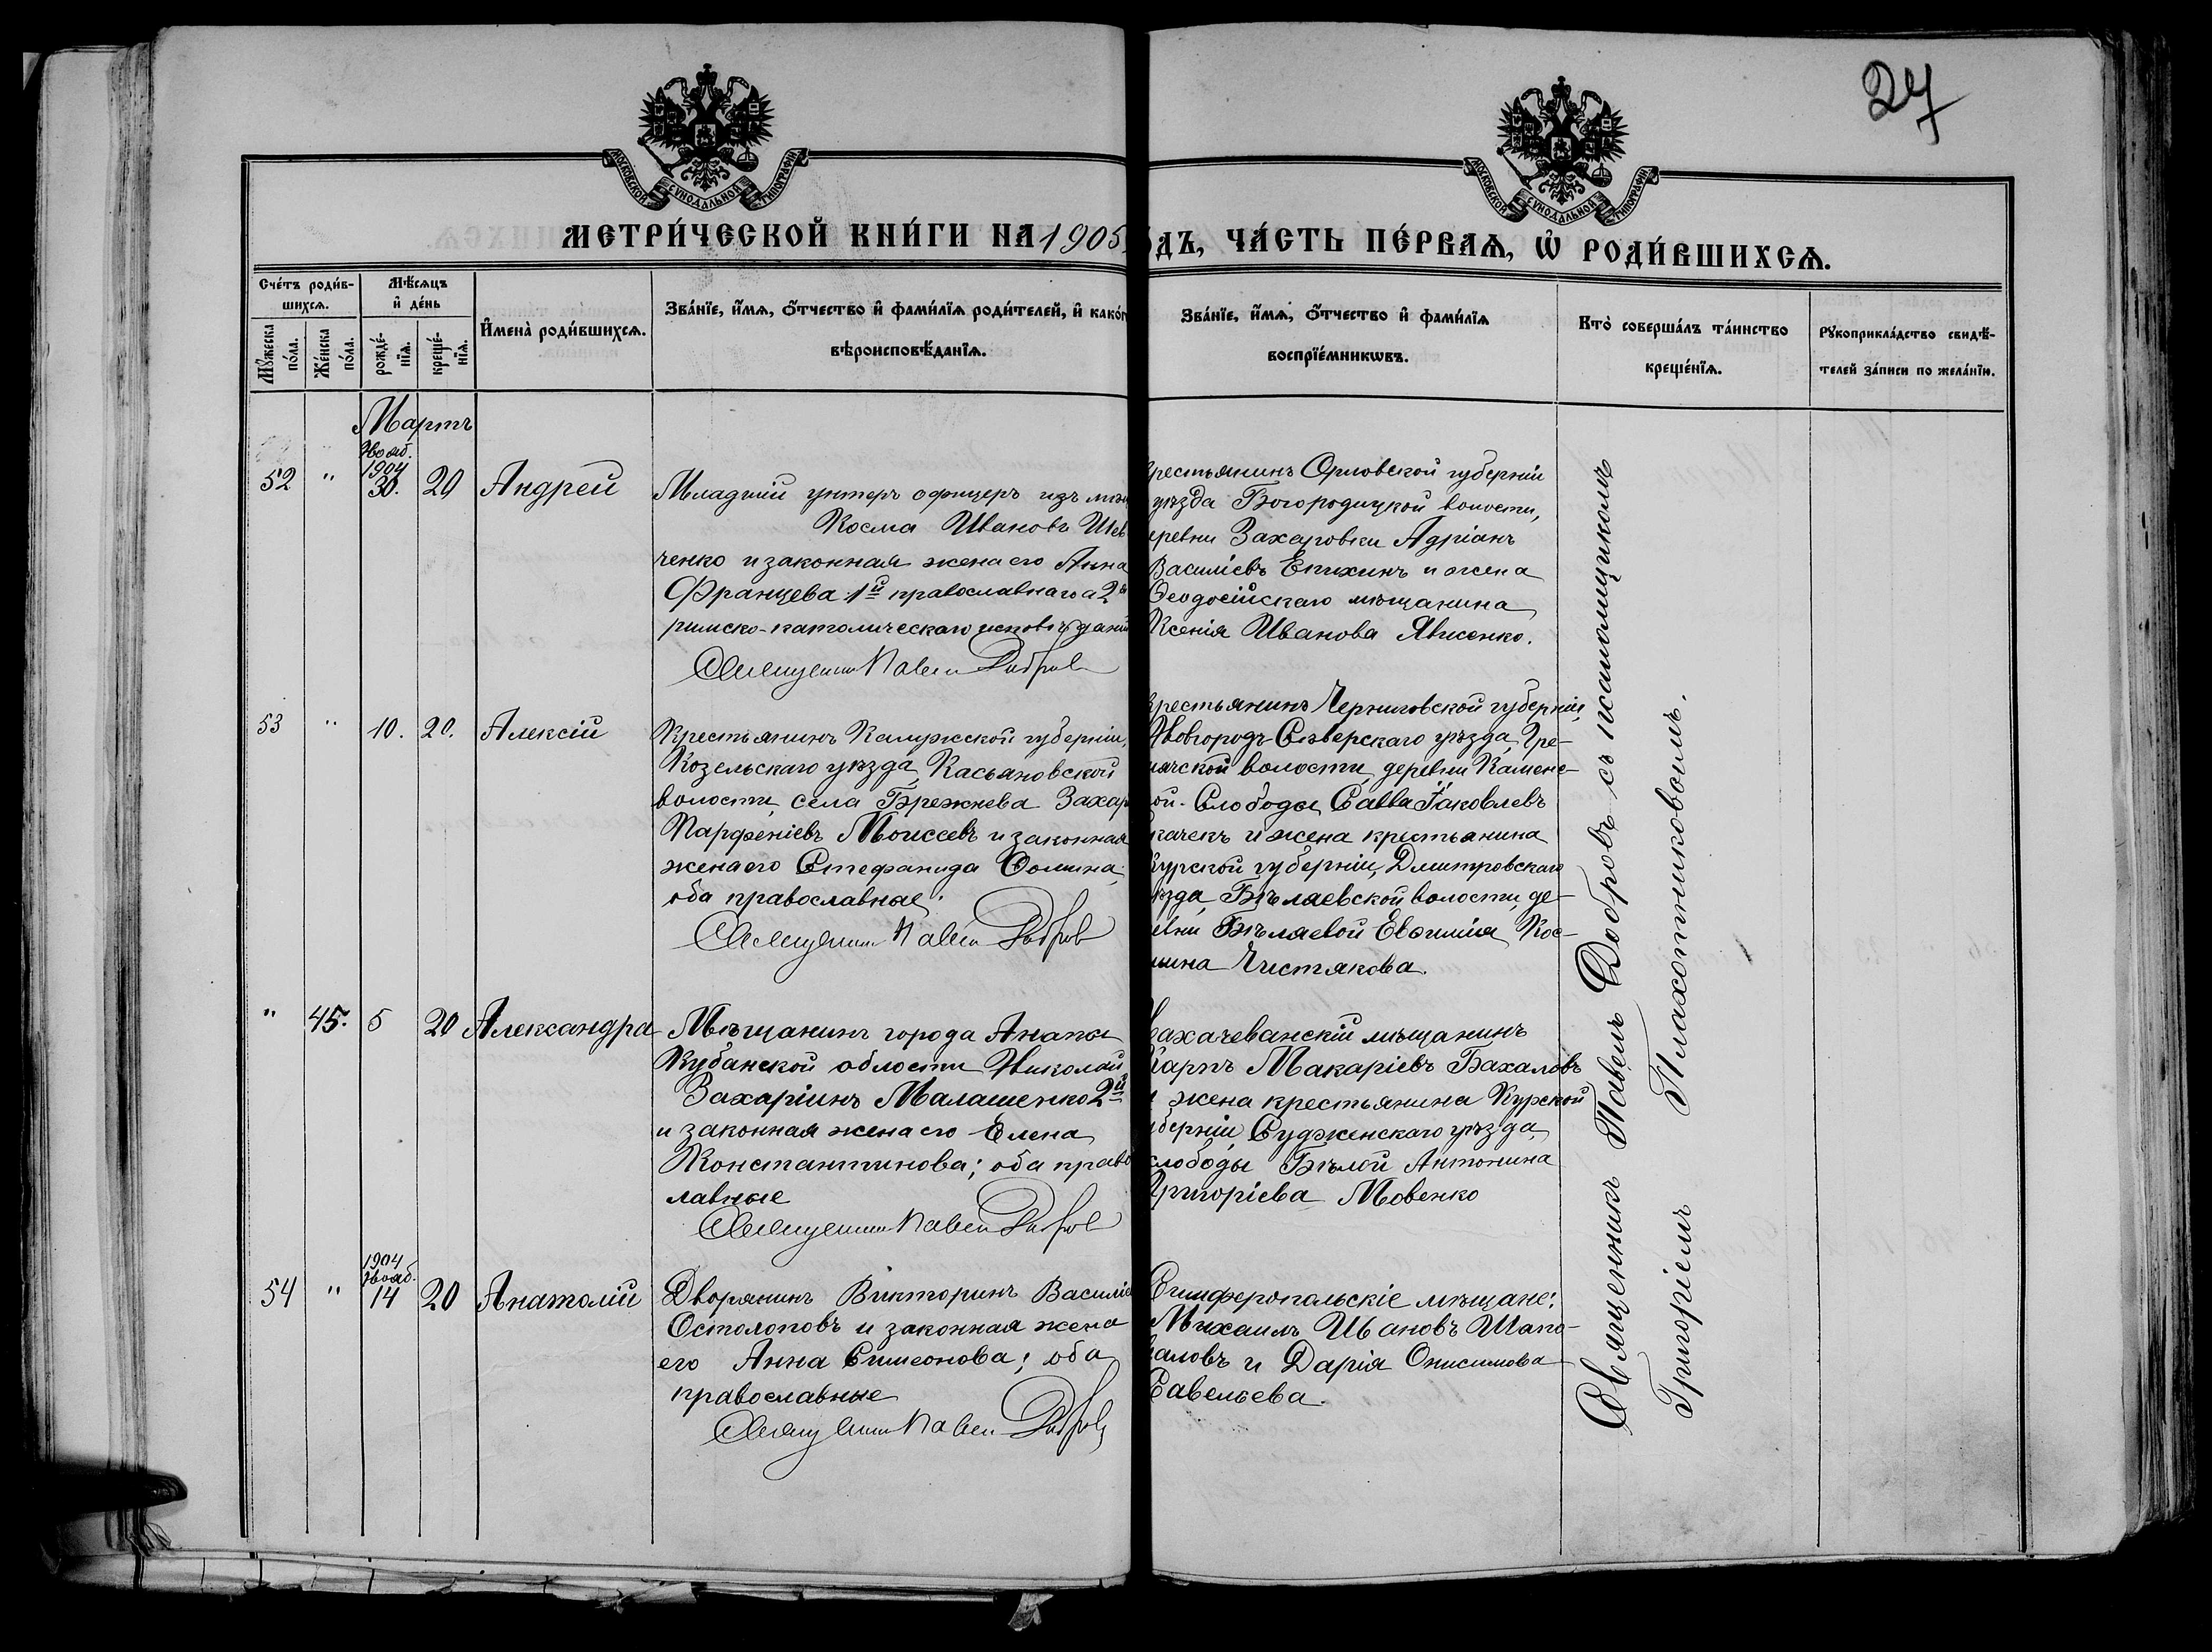 27
МОСКОВСКОЙ СѴНОДАЛЬНОЙ ТИПОГРАФІИ
МОСКОВСКОЙ СѴНОДАЛЬНОЙ ТИПОГРАФІИ
МЕТРИ́ЧЕСКОЙ КНИ́ГИ НА 1905
ДЪ, ЧА́СТЬ ПЕ́РВАѦ, Ѡ҆ РОДИ́ВШИХСѦ.
Сче́тъ роди́в-
шихся.
Мѣ́сяцъ
и҆ де́нь
Мꙋ́жеска
по́ла.
Же́нска
по́ла.
рожде́-
нїѧ.
креще́-
нїѧ.
И҆мена̀ роди́вшихсѧ.
Зва́нїе, и҆́мѧ, ѻ҆́тчество и҆ фами́лїѧ роди́телей, и҆ како́г
вѣроисповѣ́данїѧ.
Зва́нїе, и҆́мѧ, ѻ҆́тчество и҆ фами́лїѧ
воспрїе́мникѡвъ.
Кто̀ соверша́лъ та́инство
креще́нїѧ.
Рꙋкоприкла́дство свидѣ́-
телей за́писи по жела́нїю.
Мартъ
Нояб.
1904
52 " 30. 20 Андрей
Младшій унтеръ офицеръ изъ мѣщ
Косма Ивановъ Шев
ченко и законная жена его Анна
Францева 1й православнаго а 2я
римско-католическаго исповѣдані
Священникъ Павелъ Добровъ
рестьянинъ Орловской губерніи
уѣзда Богородицкой волости,
еревни Захаровки Адріанъ
Василіевъ Епихинъ и жена
Ѳеодосійскаго мѣщанина
Ксенія Иванова Явисенко.
53 " 10. 20. Алексій
Крестьянинъ Калужской губерніи,
Козельскаго уѣзда, Касьяновской
волости, села Брежнева Захар
Парѳеніевъ Моисеевъ и законная
жена его Стефанида Ѳомина,
оба православные.
Священникъ Павелъ Добровъ
рестьянинъ Черниговской губерніи,
Новгородъ-Сѣверскаго уѣзда, Гре-
мячской волости, деревни Каменс-
ой-Слободы, Савва Іаковлевъ
качекъ и жена крестьянина
Курской губерніи, Дмитровскаго
ѣзда, Бѣляевской волости, де-
евни Бѣляевой Евѳимія Кос-
мина Чистякова.
" 45. 5 20 Александра
Мѣщанинъ города Анапы
Кубанской области Николай
Захаріинъ Малашенко 2й
и законная жена его Елена
Константинова; оба право
лавные
Священникъ Павелъ Добровъ
ахачеванскій мѣщанинъ
Карпъ Макаріевъ Бахаловъ
и жена крестьянина Курской
уберніи, Судженскаго уѣзда,
слободы Бѣлой Антонина
Григоріева Мовенко
1904
Нояб.
54 " 14 20 Анатолій
Дворянинъ Викторинъ Василіе
Остолоповъ и законная жена
его Анна Симеонова; оба
православные
Священникъ Павелъ Добровъ
Симферопольскіе мѣщане:
Михаилъ Ивановъ Шапо-
валовъ и Дарія Онисимова
Савельева.
Священникъ Павелъ Добровъ съ псаломщикомъ
Григоріемъ Плахотниковомъ.